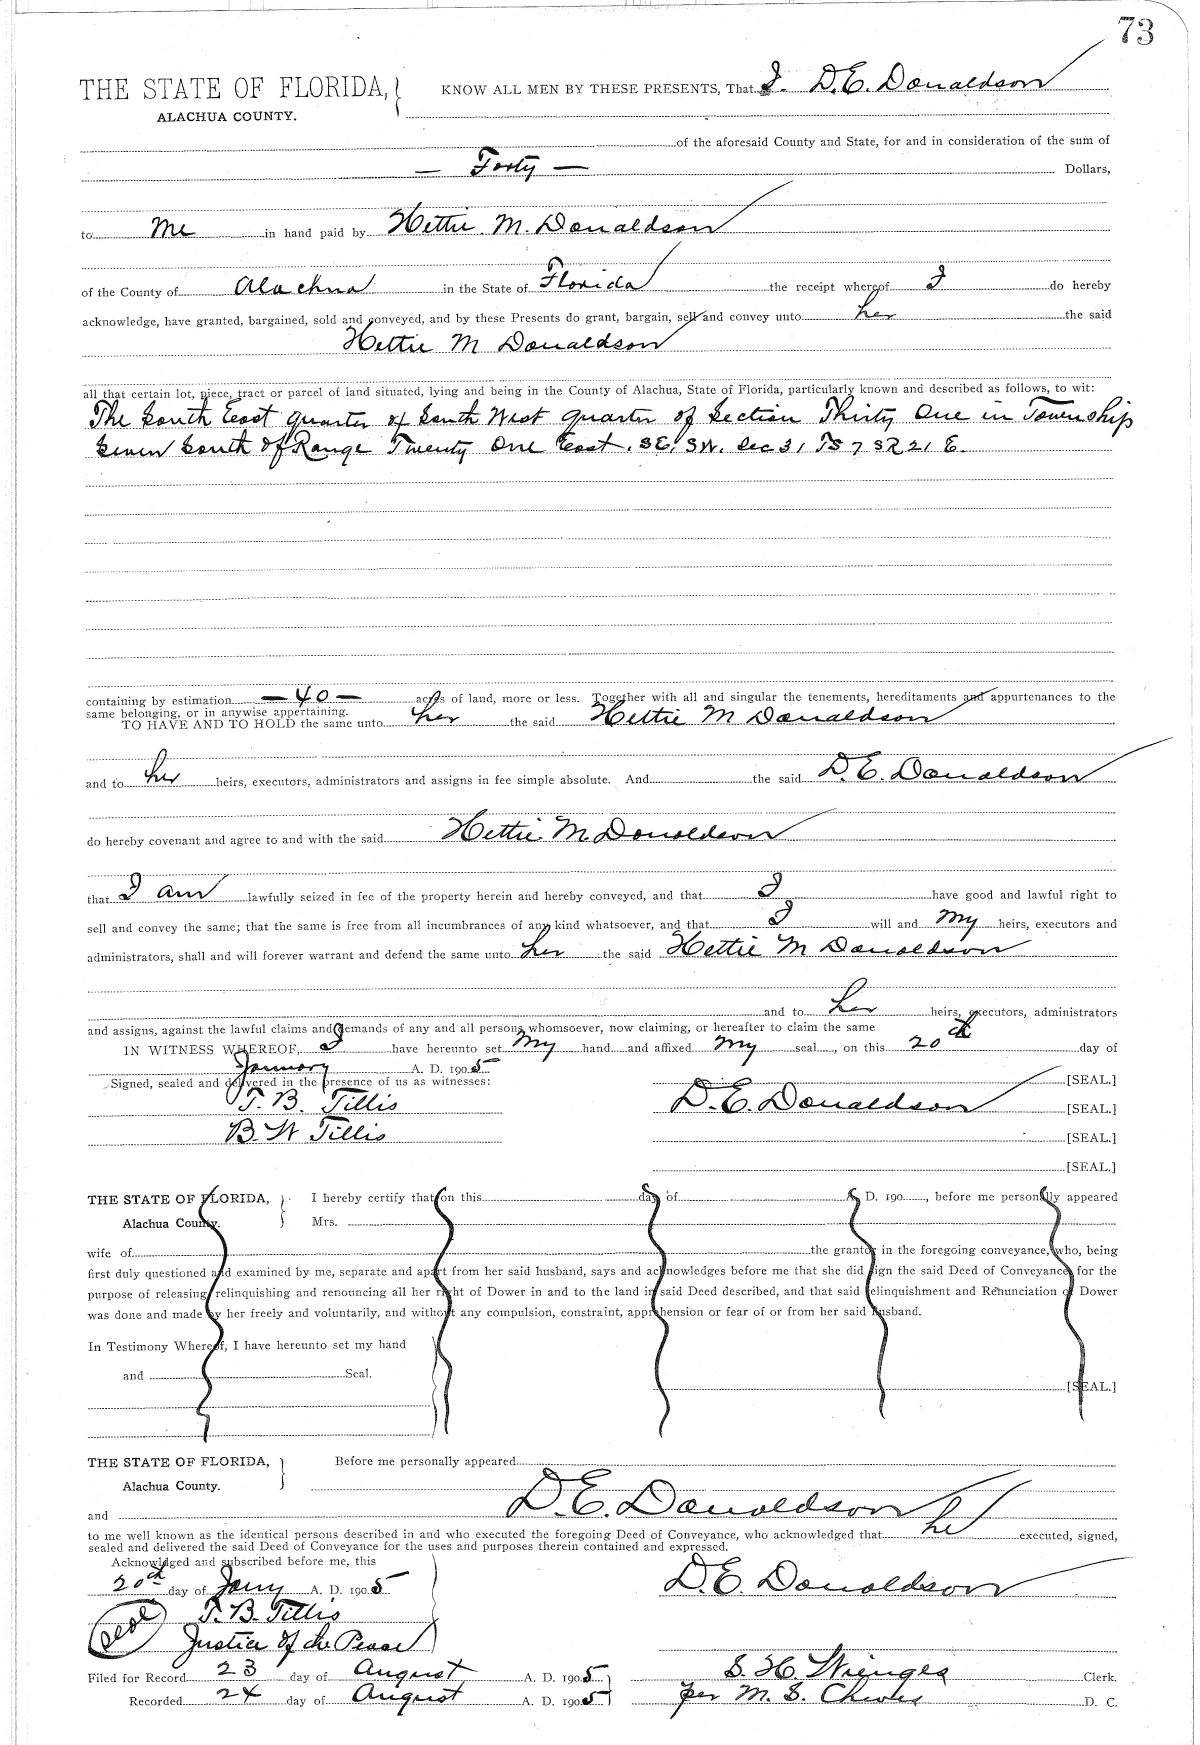 73
THE STATE OF FLORIDA, KNOW ALL MEN BY THESE PRESENTS, That I D.E. Donaldson
ALACHUA COUNTY.
of the aforesaid County and State, for and in consideration of the sum of
— Forty — Dollars,
to Me in hand paid by Hettie M. Donaldson
of the County of Alachua in the State of Florida the receipt whereof I do hereby
acknowledge, have granted, bargained, sold and conveyed, and by these Presents do grant, bargain, sell and convey unto her the said
Hettie M Donaldson
all that certain lot, piece, tract or parcel of land situated, lying and being in the County of Alachua, State of Florida, particularly known and described as follows, to wit:
The South East quarter of South West quarter of Section Thirty One in Township
Seven South of Range Twenty One East. SE, SW. Sec 31 TS 7 SR 21 E.
containing by estimation — 40 — acres of land, more or less. Together with all and singular the tenements, hereditaments and appurtenances to the
same belonging, or in anywise appertaining.
TO HAVE AND TO HOLD the same unto her the said Hettie M Donaldson
and to her heirs, executors, administrators and assigns in fee simple absolute. And the said D.E. Donaldson
do hereby covenant and agree to and with the said Hettie M. Donaldson
that I am lawfully seized in fee of the property herein and hereby conveyed, and that I have good and lawful right to
sell and convey the same; that the same is free from all incumbrances of any kind whatsoever, and that I will and my heirs, executors and
administrators, shall and will forever warrant and defend the same unto her the said Hettie M Donaldson
and to her heirs, executors, administrators
and assigns, against the lawful claims and demands of any and all persons whomsoever, now claiming, or hereafter to claim the same
IN WITNESS WHEREOF, I have hereunto set my hand and affixed my seal, on this 20th day of
January A. D. 1905
Signed, sealed and delivered in the presence of us as witnesses: [SEAL.]
T. B. Tillis D.E. Donaldson [SEAL.]
B. W Tillis [SEAL.]
[SEAL.]
THE STATE OF FLORIDA, I hereby certify that on this day of A. D. 190 , before me personally appeared
Alachua County. Mrs.
wife of the grantor in the foregoing conveyance, who, being
first duly questioned and examined by me, separate and apart from her said husband, says and acknowledges before me that she did sign the said Deed of Conveyance for the
purpose of releasing, relinquishing and renouncing all her right of Dower in and to the land in said Deed described, and that said relinquishment and Renunciation of Dower
was done and made by her freely and voluntarily, and without any compulsion, constraint, apprehension or fear of or from her said husband.
In Testimony Whereof, I have hereunto set my hand
and Seal. [SEAL.]
THE STATE OF FLORIDA, Before me personally appeared
Alachua County.
and D.E. Donaldson
to me well known as the identical persons described in and who executed the foregoing Deed of Conveyance, who acknowledged that he executed, signed,
sealed and delivered the said Deed of Conveyance for the uses and purposes therein contained and expressed.
Acknowledged and subscribed before me, this
20th day of Jany A. D. 1905 D.E. Donaldson
Seal T. B. Tillis
Justice of the Peace
Filed for Record 23 day of August A. D. 1905 S. H. Wienges Clerk.
Recorded 24 day of August A. D. 1905 per M. S. Cheves D. C.